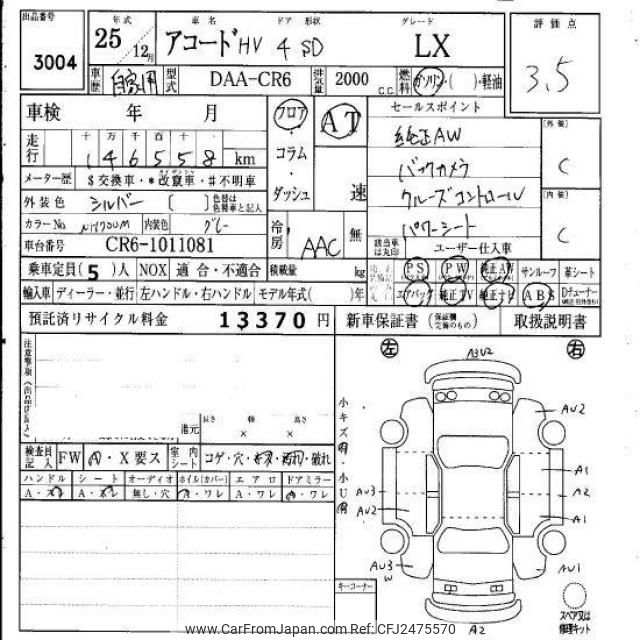 出品番号 3004
年式 25 12月
車名 アコード HV
ドア 形状 4 SD
グレード LX
評価点 3.5
車歴 自家用
型式 DAA-CR6
排気量 2000 C.C.
燃料 ガソリン・( )・軽油
車検 年 月
走行 十 万 千 百 十 一
146558 km
メーター歴 $交換車・*改竄車・#不明車
外装色 シルバー [ ] 色替は色替車と記入
カラーNo NH700M 内装色 グレー
車台番号 CR6-1011081
フロア・コラム・ダッシュ
AT 速
冷房 AAC 無
セールスポイント
純正AW
バックカメラ
クルーズコントロール
パワーシート
[外装] C
[内装] C
該当車は丸印 ユーザー仕入車
乗車定員(5)人 NOX 適合・不適合 積載量 kg
PS PW 純正AW サンルーフ 革シート
輸入車 ディーラー・並行 左ハンドル・右ハンドル モデル年式( )年
エアバック 純正TV 純正ナビ ABS Dチューナー
預託済リサイクル料金 13370円
新車保証書(保証欄完備のもの) 取扱説明書
注意事項
港元
長さ 幅 高さ
× ×
検査員記入 FW A・X要ス 室内シート コゲ・穴・キズ・汚れ・破れ
ハンドル シート オーディオ ホイル(カバー) エアロ ドアミラー
A・スレ A・スレ 無し・穴 A・ワレ A・ワレ A・ワレ
左 右
小キズ有・小U有
A3V2
AU2
A1
A2
A1
AU3
AU2
AU3
W
AU1
A2
キーコーナー
スペア又は
修理キット
www.CarFromJapan.com Ref:CFJ2475570